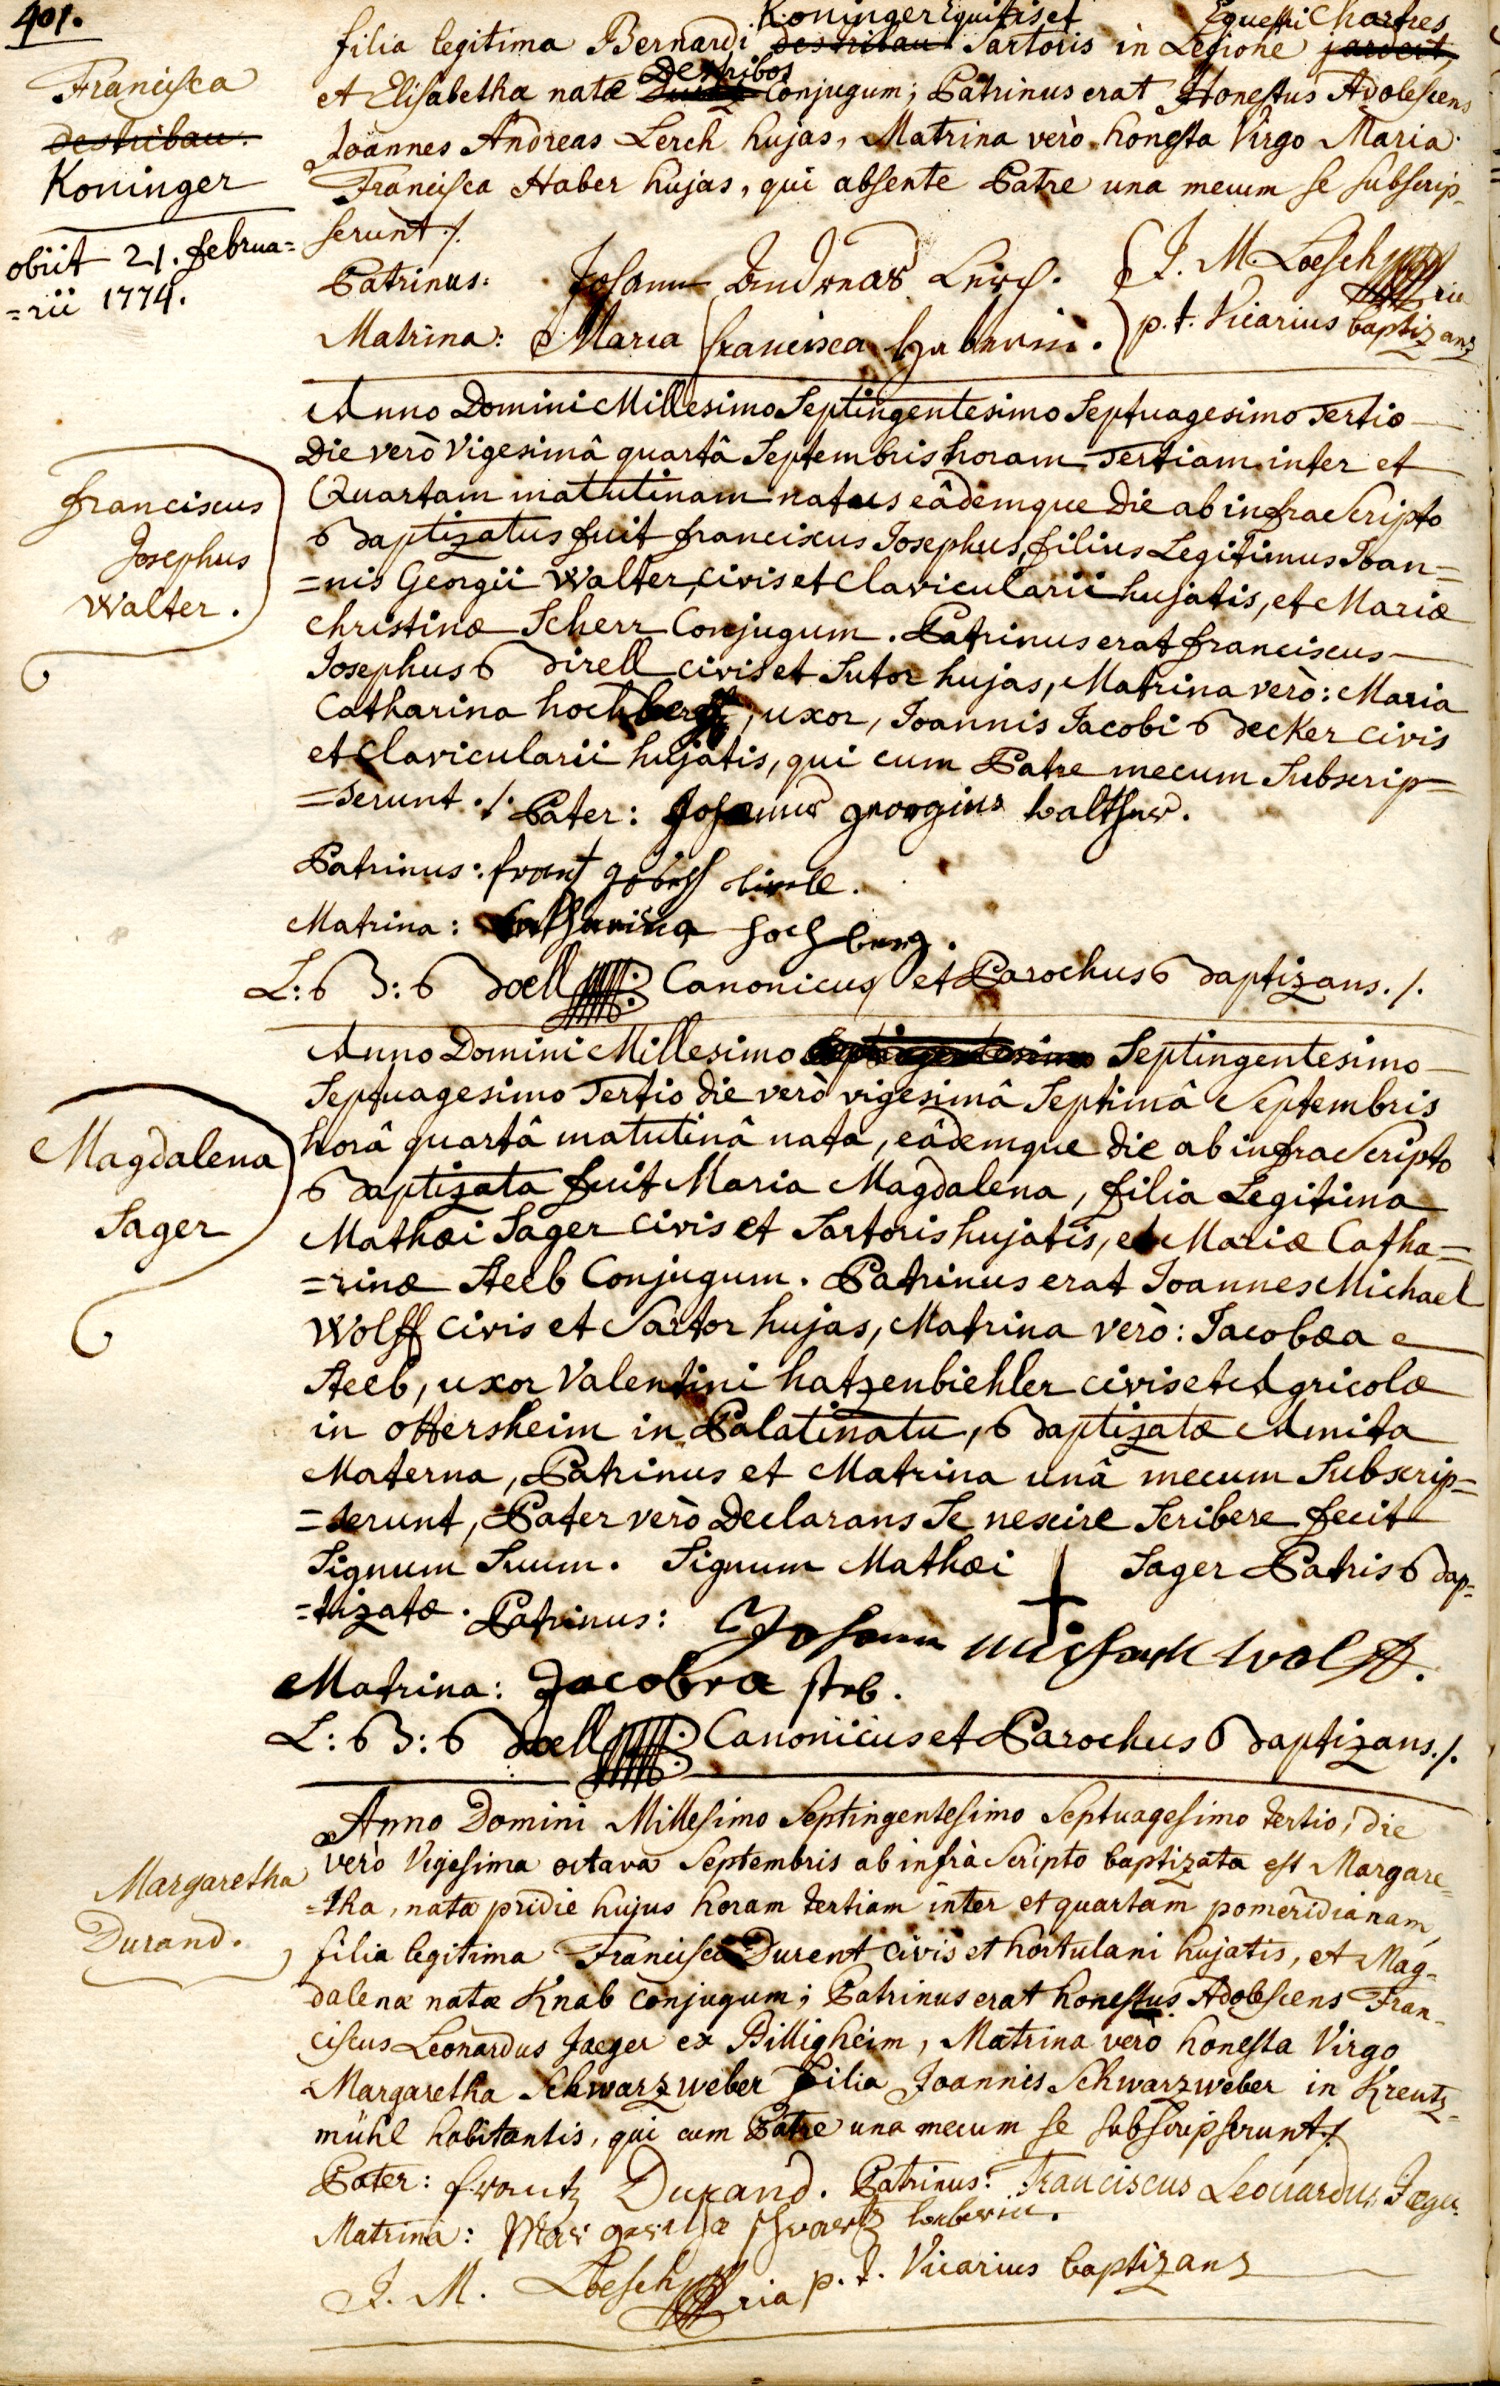 401.
Francisca
destribau.
Koninger
obiit 21. februa=
=rii 1774.
Koninger Equitis et Equestri Chartres
filia legitima Bernardi destribau Sartoris in Legione
Destribos
et Elisabetha natæ Conjugum; Patrinus erat Honestus Adolescens
Joannes Andreas Lerch hujas, Matrina verò honesta Virgo Maria
Francisca Haber hujas, qui absente Patre una mecum se subscrip-
serunt ./.
Patrinus: Johann Andreas Lerch. J. M. Loesch
Matrina: Maria francisca Haberin. p. t. Vicarius baptizans
franciscus
Josephus
Walter.
Anno Domini Millesimo Septingentesimo Septuagesimo Tertio
Die verò Vigesimâ quartâ Septembris horam Tertiam inter et
Quartam matutinam natus eâdemque Die ab infra Scripto
Baptizatus fuit franciscus Josephus, filius Legitimus Joan=
=nis Georgii Walter, civis et Clavicularii hujatis, et Mariæ
Christinæ Scherr Conjugum. Patrinus erat franciscus
Josephus Birell civis et Sutor hujas, Matrina verò: Maria
Catharina hochberg, uxor, Joannis Jacobi Becker civis
et Clavicularii hujatis, qui cum Patre mecum Subscrip=
=serunt ./. Pater: Johannes georgius walther.
Patrinus: frantz Joseph birell.
Matrina: Catharina hochberg.
L: B: Boell Canonicus et Parochus Baptizans ./.
Magdalena
Sager
Anno Domini Millesimo Septingentesimo Septingentesimo
Septuagesimo Tertio die verò vigesimâ Septimâ Septembris
horâ quartâ matutinâ nata, eâdemque die ab infra Scripto
Baptizata fuit Maria Magdalena, filia Legitima
Mathæi Sager civis et Sartoris hujatis, et Mariæ Catha=
=rinæ Steeb Conjugum. Patrinus erat Joannes Michael
Wolff civis et Sartor hujas, Matrina verò: Jacobæa
Steeb, uxor Valentini hatzenbiehler civis et Agricolæ
in ottersheim in Palatinatu, Baptizatæ Amita
Materna, Patrinus et Matrina unâ mecum Subscrip=
=serunt, Pater verò Declarans Se nescire Scribere fecit
Signum Suum. Signum Mathæi Sager Patris Bap=
=tizatæ. Patrinus: Johann michael wolff.
Matrina: Jacobea steb.
L: B: Boell Canonicus et Parochus Baptizans ./.
Margaretha
Durand.
Anno Domini Millesimo Septingentesimo Septuagesimo tertio, die
verò Vigesima octava Septembris ab infrà Scripto baptizata est Margare=
=tha, nata pridie hujus horam tertiam inter et quartam pomeridianam,
filia legitima Francisci Durent civis et hortulani hujatis, et Mag-
dalenæ natæ Knab conjugum; Patrinus erat honestus Adolescens Fran-
ciscus Leonardus Jaeger ex Billigheim, Matrina verò honesta Virgo
Margaretha Schwarzweber Filia Joannis Schwarzweber in Kreutz-
mühl habitantis, qui cum Patre una mecum se subscripserunt ./.
Pater: frantz Durand. Patrinus: Franciscus Leonardus Jæger
Matrina: Margaretha schwartz weberin.
J. M. Loesch p. t. Vicarius baptizans